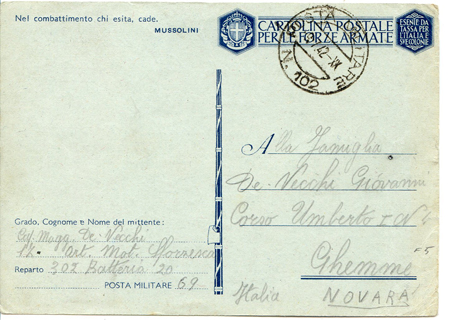 Nel combattimento chi esita, cade.
MUSSOLINI
CARTOLINA POSTALE
PER LE FORZE ARMATE
ESENTE DA
TASSA PER
L'ITALIA E
SUE COLONIE
POSTA MILITARE
N. 102
42-XX
Alla Famiglia
De Vecchi Giovanni
Corso Umberto I N
Ghemme
Italia NOVARA
Grado, Cognome e Nome del mittente:
De Vecchi
Art. Mot. Sforzesca
Reparto 302 Batteria 20
POSTA MILITARE 69